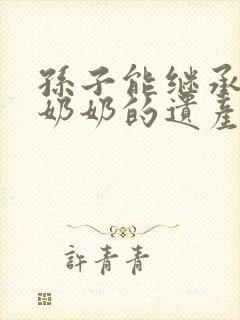 孫子能继承
奶奶的遺產
許青青